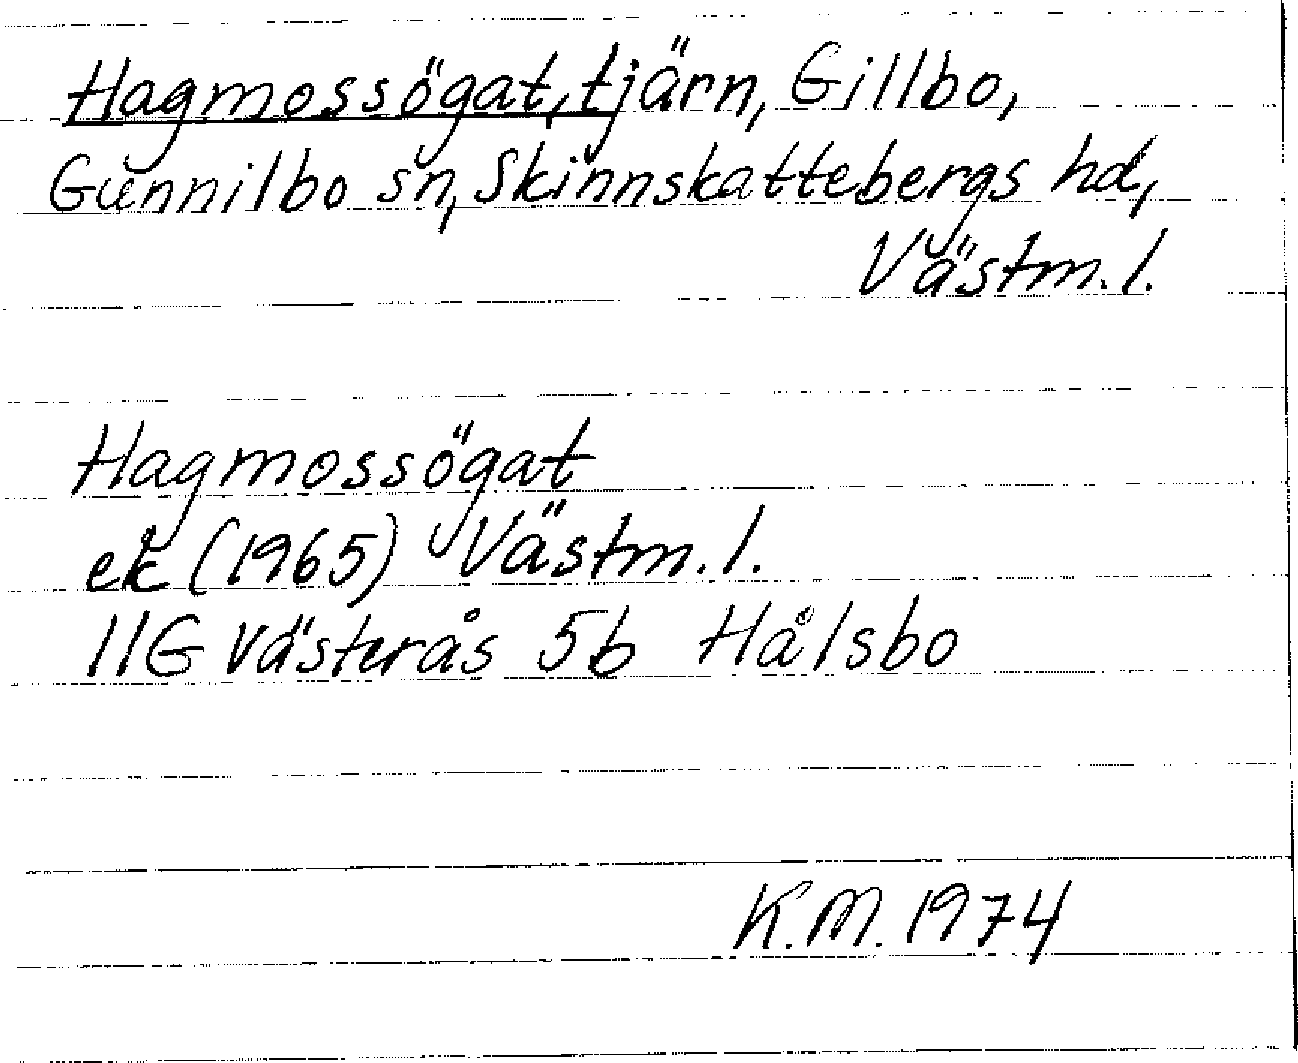 Hagmossögat, tjärn, Gillbo,
Gunnilbo sn, Skinnskattebergs hd,
Västm.l.
Hagmossögat
ek (1965) Västm.l.
11G Västerås 5b Hålsbo
K.M. 1974